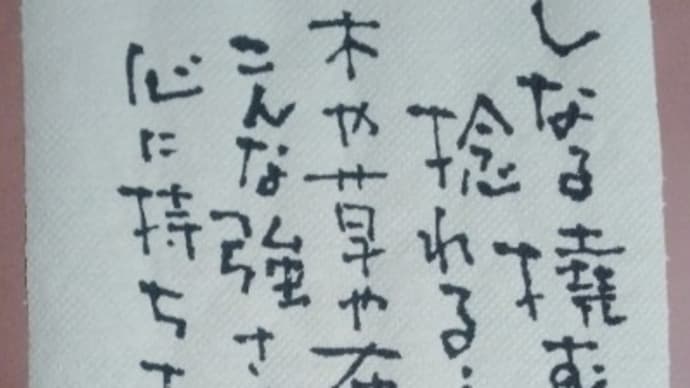 しなる撓む
捻れる
木や草や
こんな強さ
心に持ち